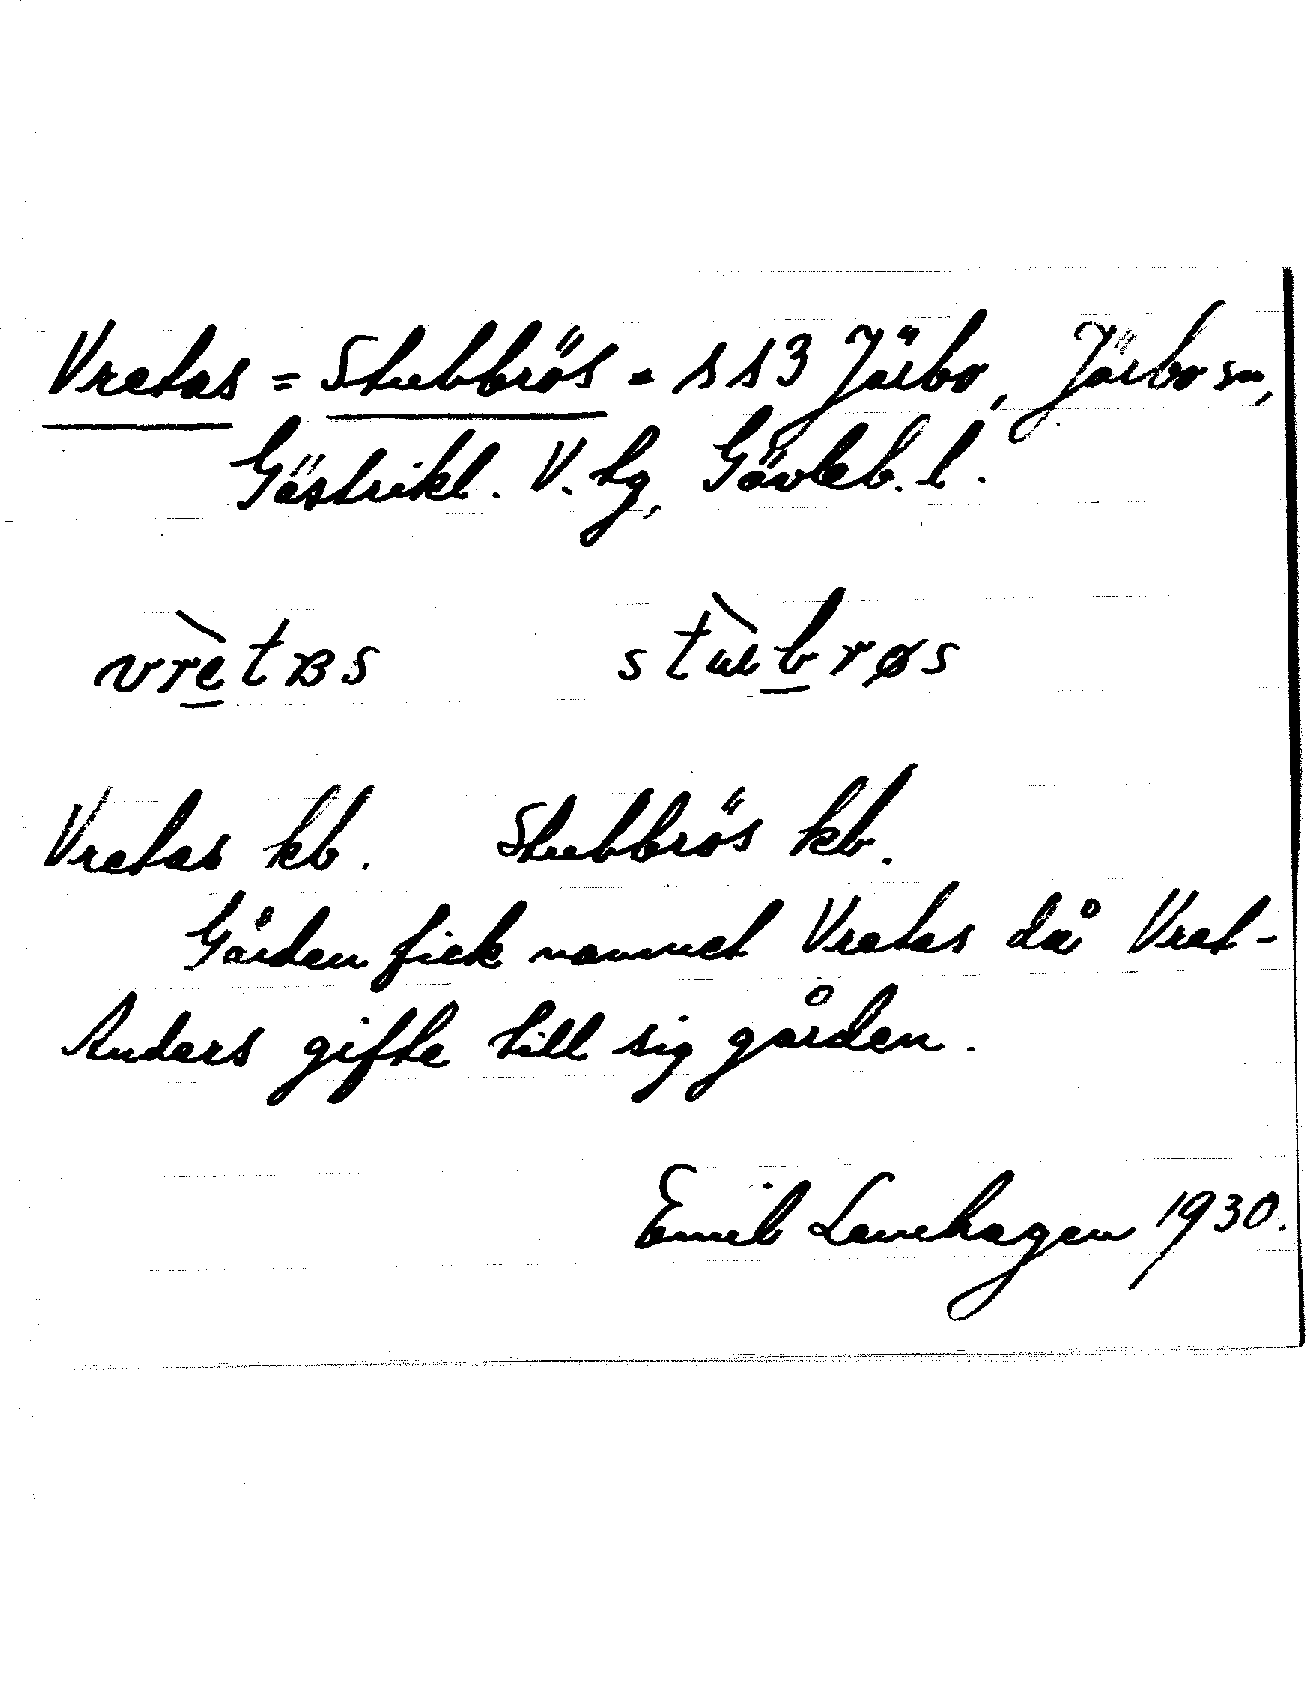 Vretas = Stubbrös - s s 3 Järbo, Järbo sn,
Gästrikl. V. tg, Gävleb. l.
vrètɐs stùbrøs
Vretas kb. Stubbrös kb.
Gården fick namnet Vretas då Vret-
Anders gifte till sig gården.
Emil Lanehagen 1930.